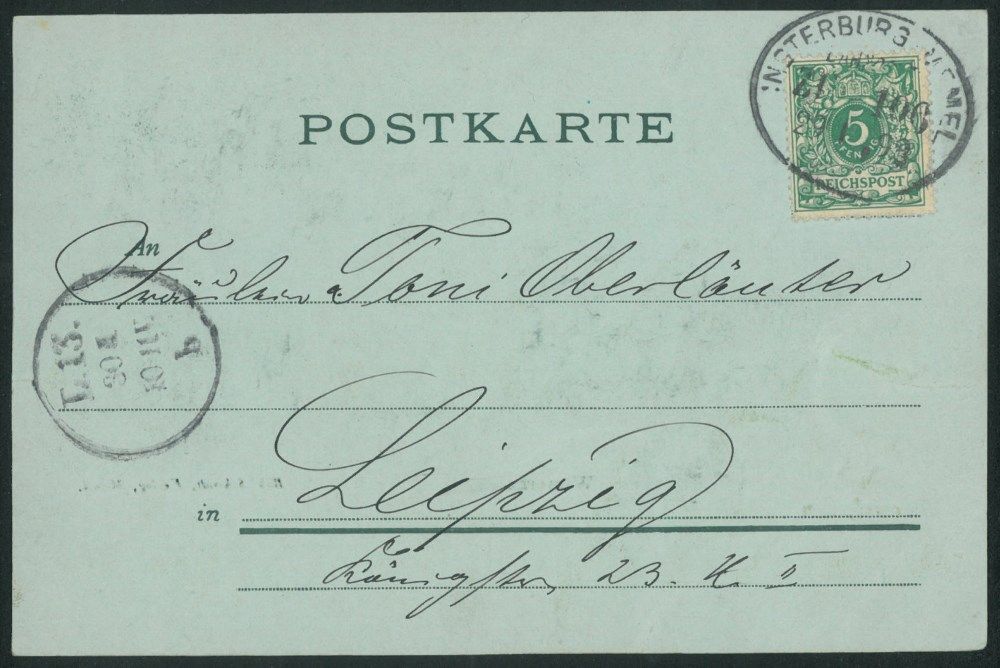 POSTKARTE
INSTERBURG MEMEL
5
PFENNIG
REICHSPOST
An
Fräulein Toni Oberländer
L. 13.
b
Leipzig
in
Königstr. 23. H. II